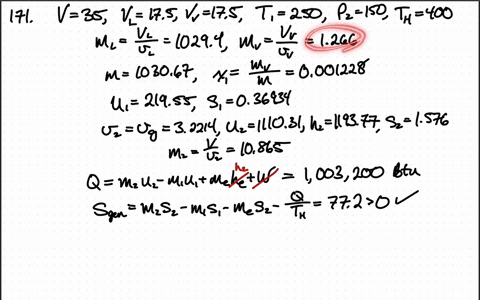 171. V=35, V_L=17.5, V_V=17.5, T_1=250, P_2=150, T_H=400
m_L = V_L/v_L = 1029.4, m_V = V_V/v_V = 1.266
m=1030.67, x_1 = m_V/m = 0.001228
u_1 = 219.55, s_1 = 0.36934
v_2 = v_g = 3.2214, u_2 = 1110.31, h_2 = 1193.77, s_2 = 1.576
m_2 = V/v_2 = 10.865
Q = m_2u_2 - m_1u_1 + m_e h_e h_2 + W = 1,003,200 Btu
S_gen = m_2s_2 - m_1s_1 - m_e s_2 - Q/T_H = 77.2 > 0 ✓